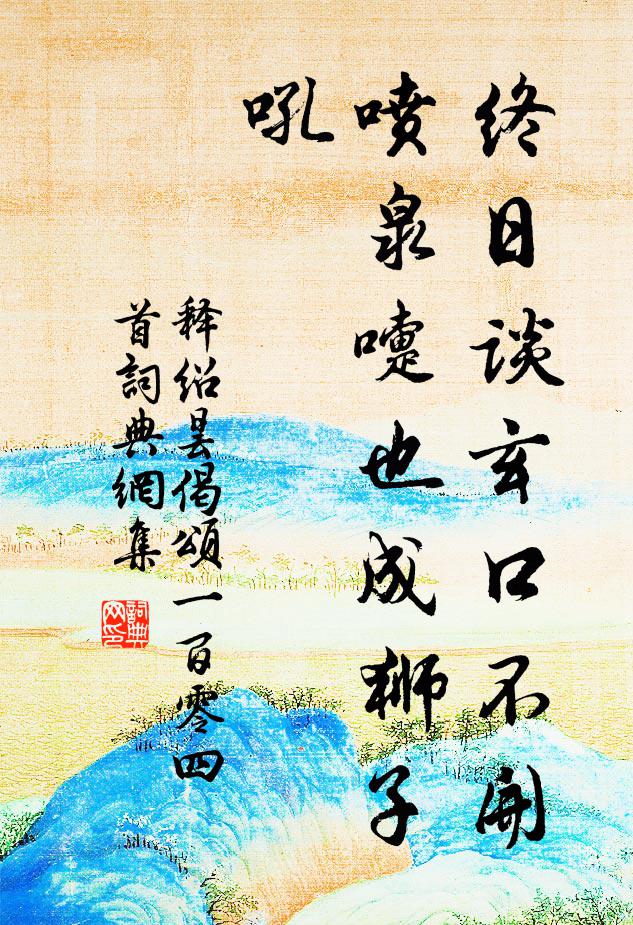 终日谈玄口不开
喷泉嚏也成狮子
吼
释绍昙偈颂一百零四
首词典網集
詞典
网印